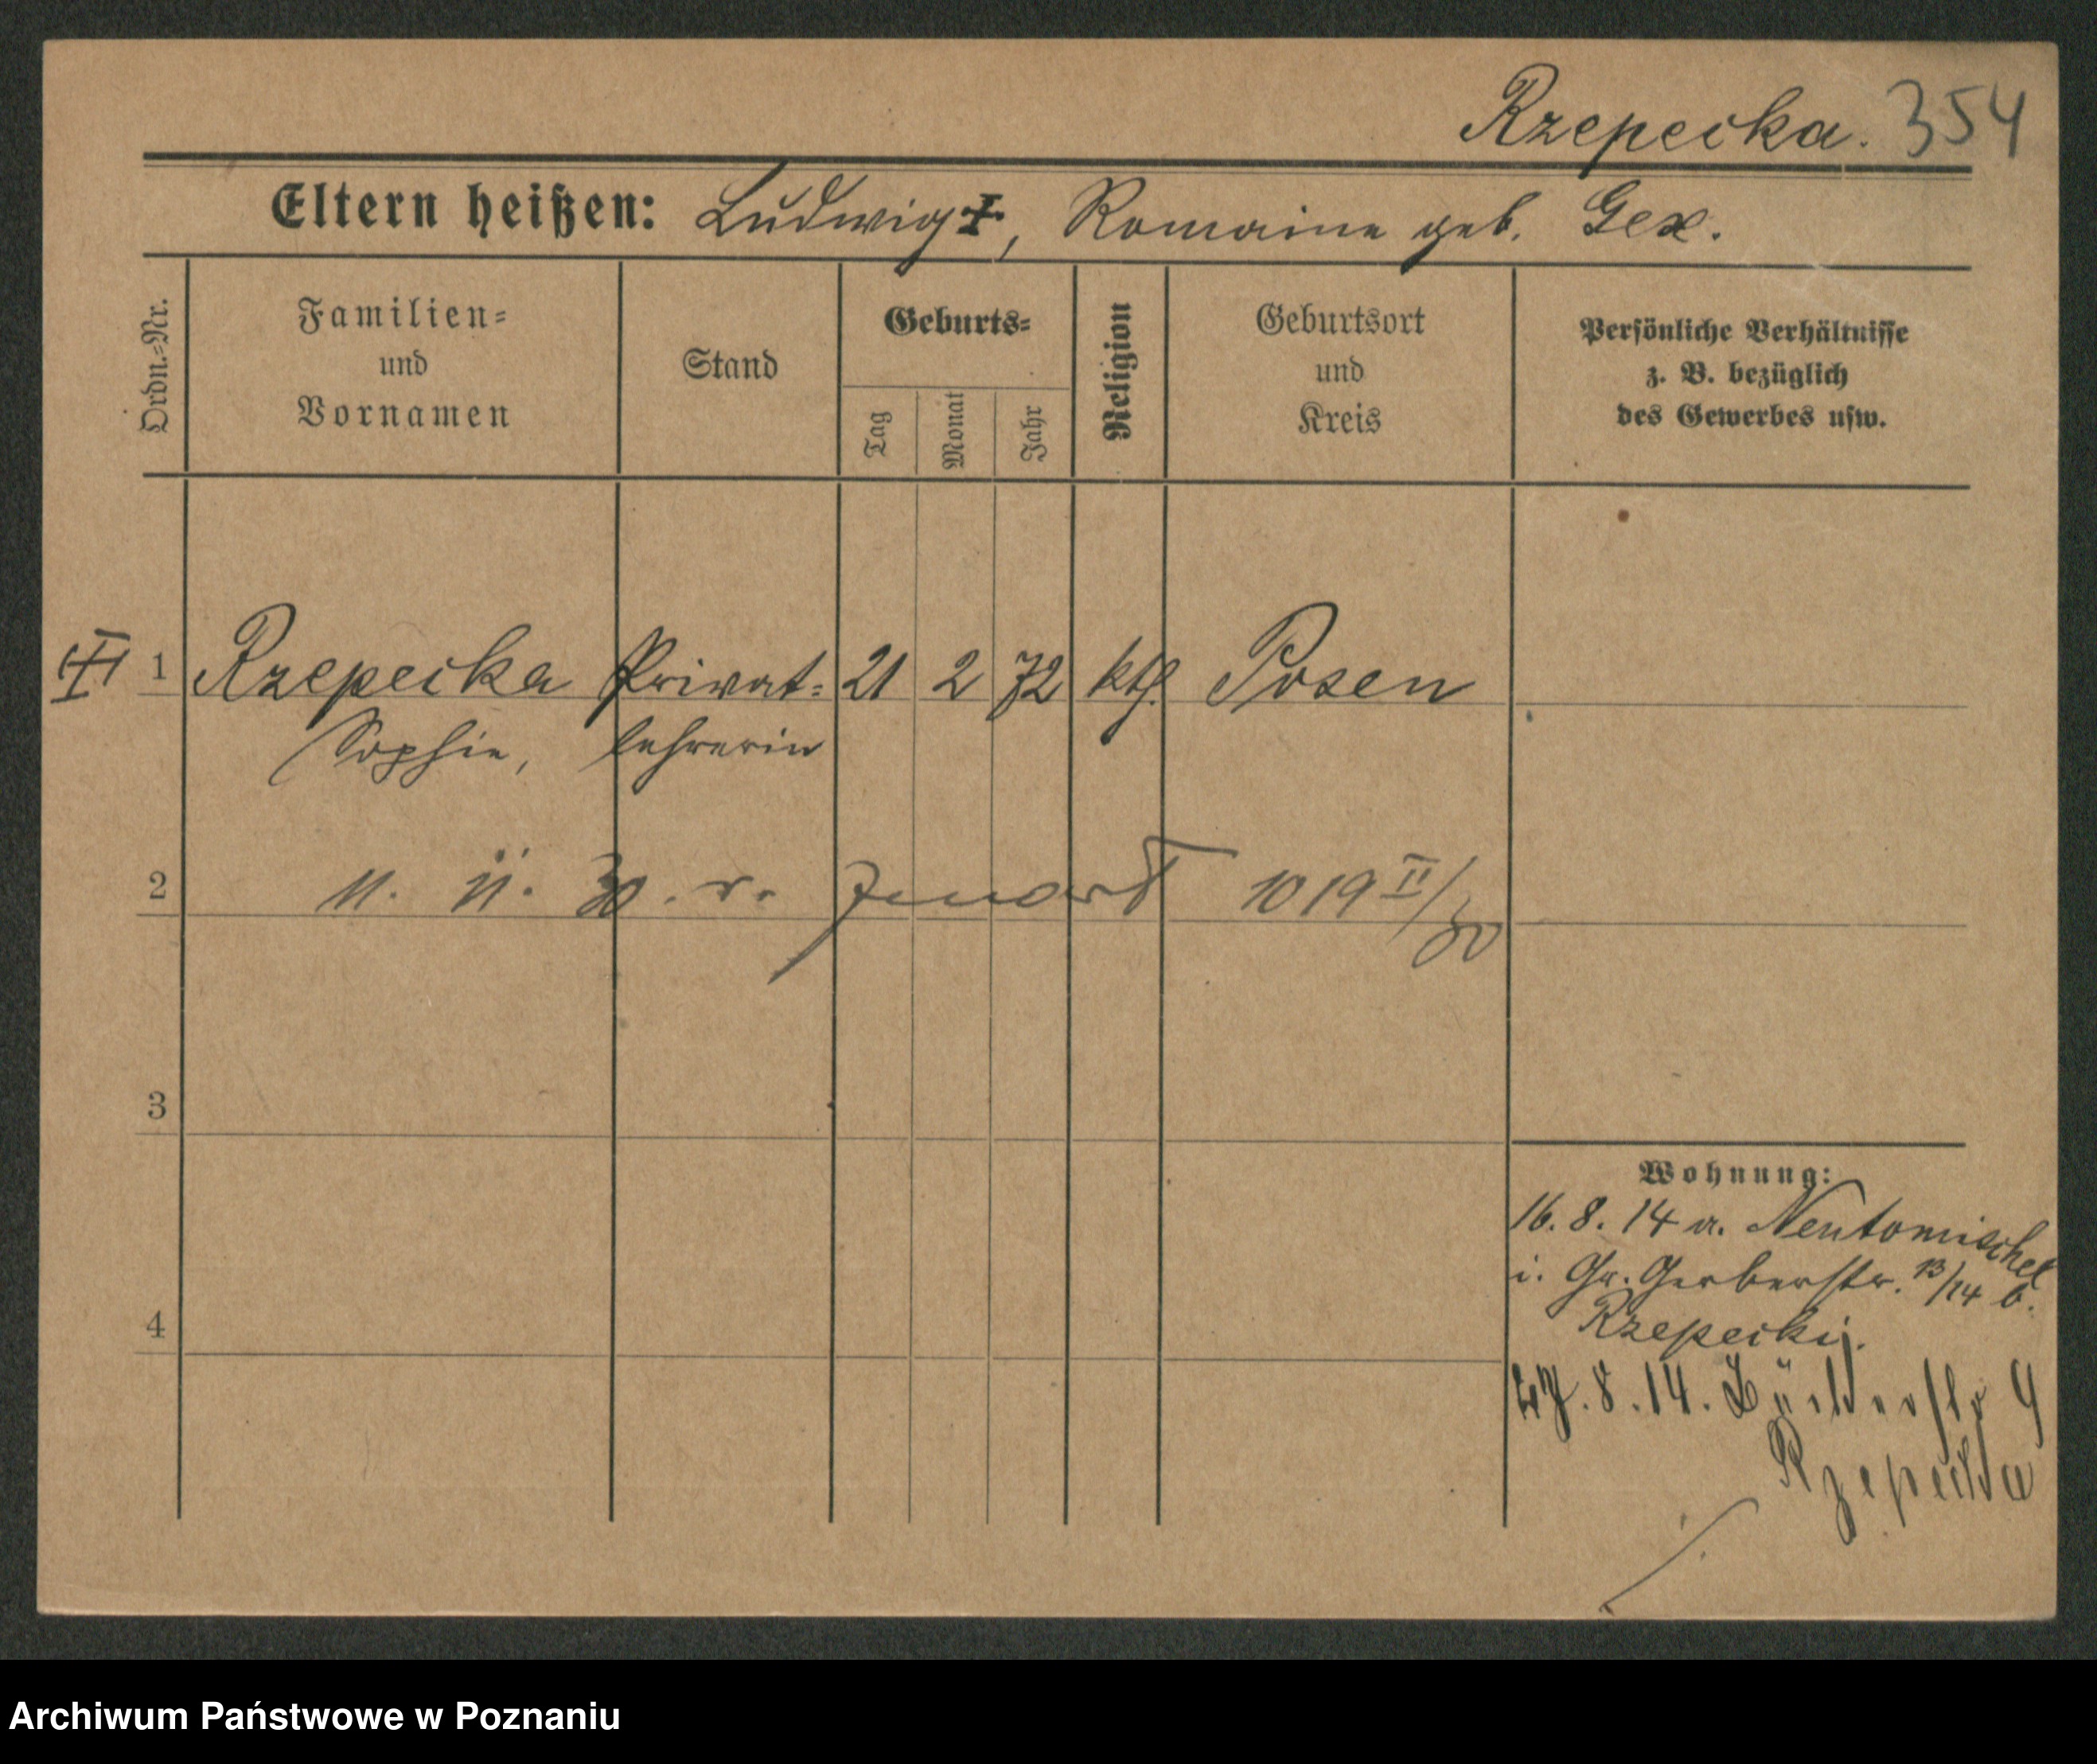 Rzepecka. 354
Eltern heißen: Ludwig †, Romaine geb. Gex.
Ordn.-Nr.
Familien-
und
Vornamen
Stand
Geburts-
Tag
Monat
Jahr
Religion
Geburtsort
und
Kreis
Persönliche Verhältnisse
z. B. bezüglich
des Gewerbes usw.
1 Rzepecka Privat- 21 2 72 kth. Posen
Sophie, lehrerin
2 11. 11. 30. v. 1019 II/30
3
Wohnung:
16. 8. 14 a. Neutomischel
i. Gr. Gerberstr. 13/14 b.
Rzepecki.
4
8.14. 9
Rzepecka
Archiwum Państwowe w Poznaniu